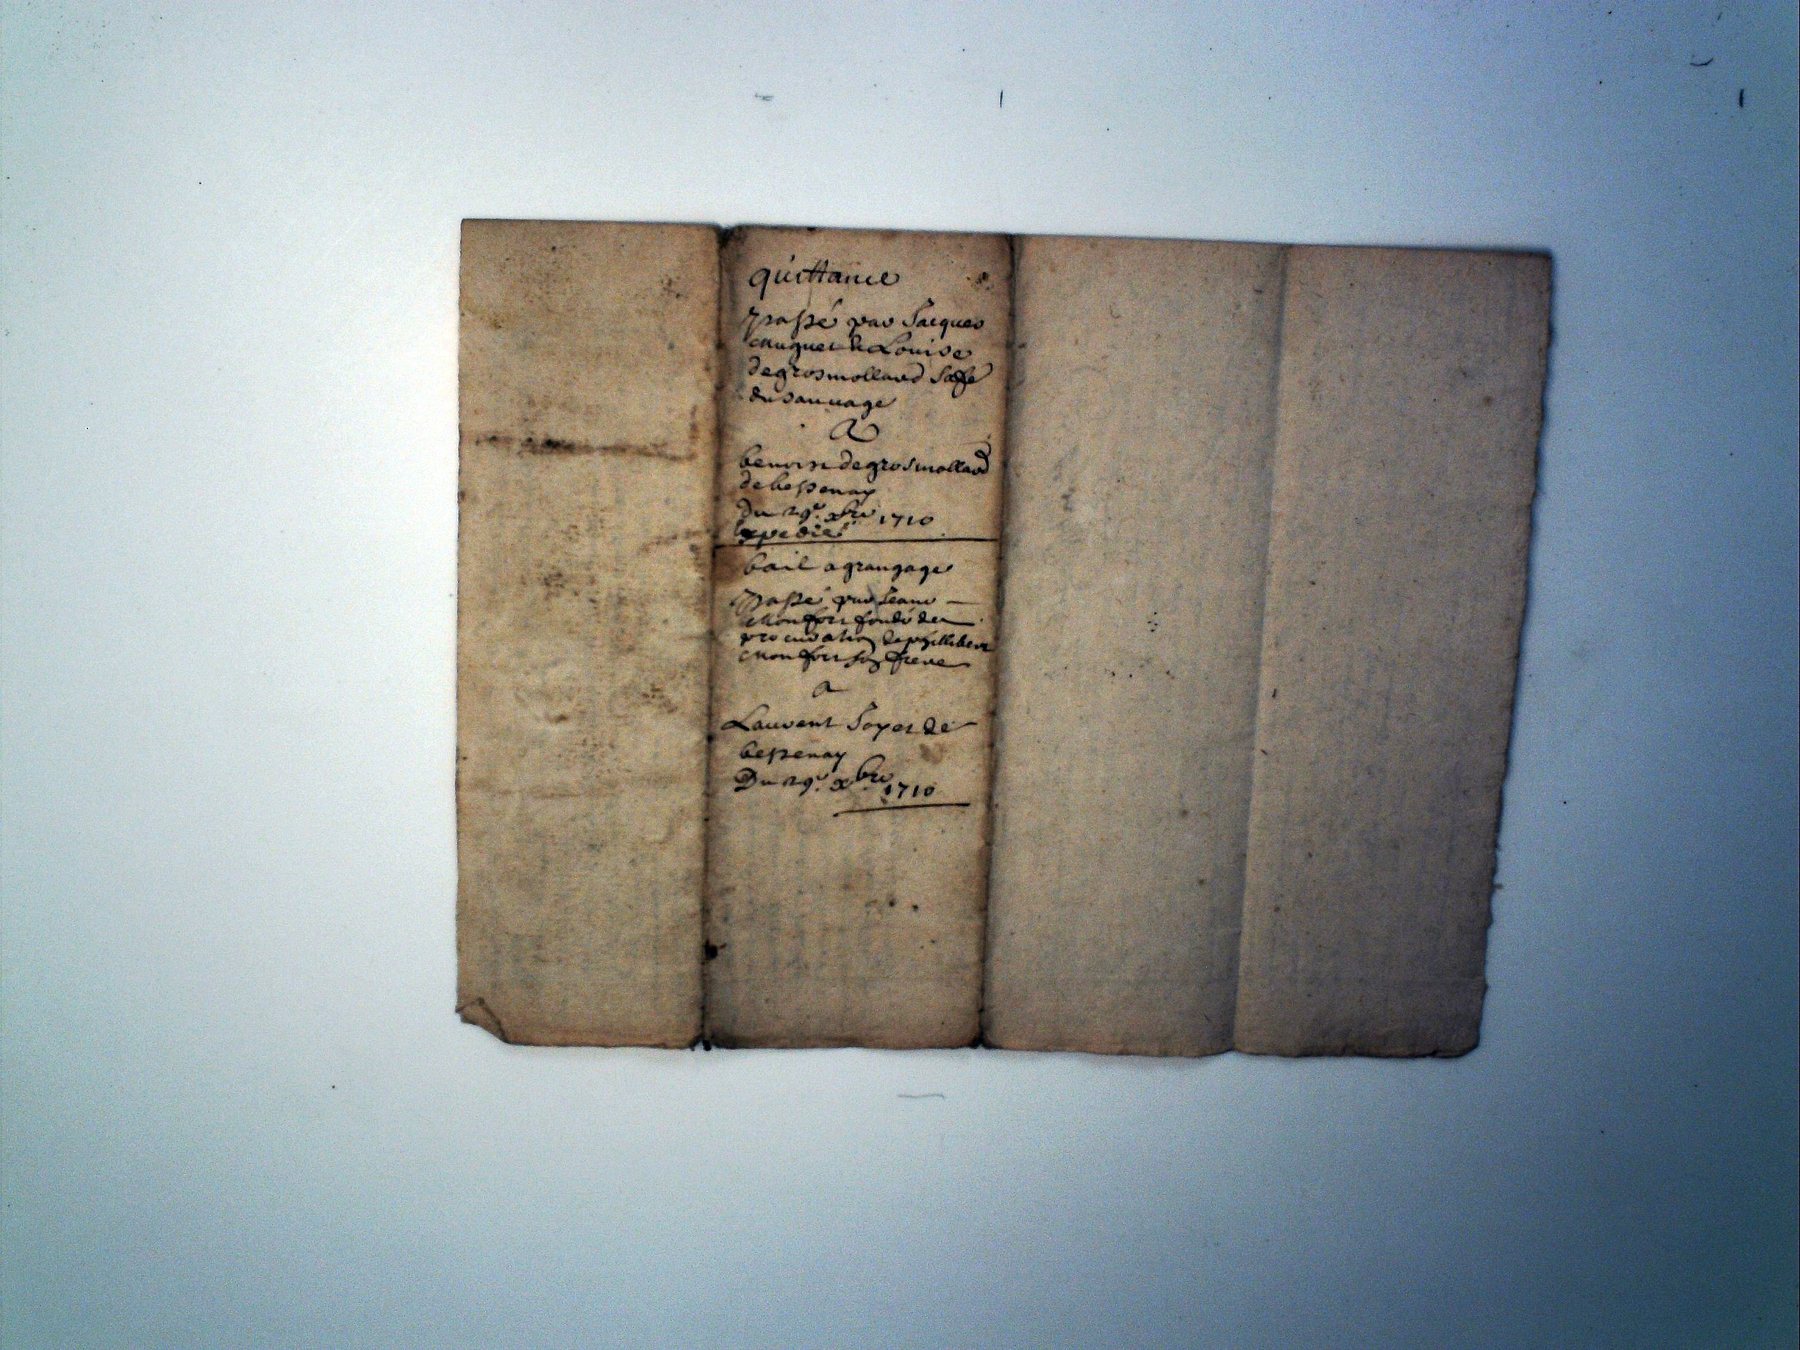 quittance
passé par Jacques
muguet & Louise
degrosmollard sa fe
du sauuage
A
benoist degrosmollard
de bessenay
Du 29e. xbre 1710
Expedié
bail agrangage
passé par Jeane
Monfort fondé de
procuration de phillibert
monfort son frere
a
Laurent Soyer de
bessenay
Du 29e. xbre
1710